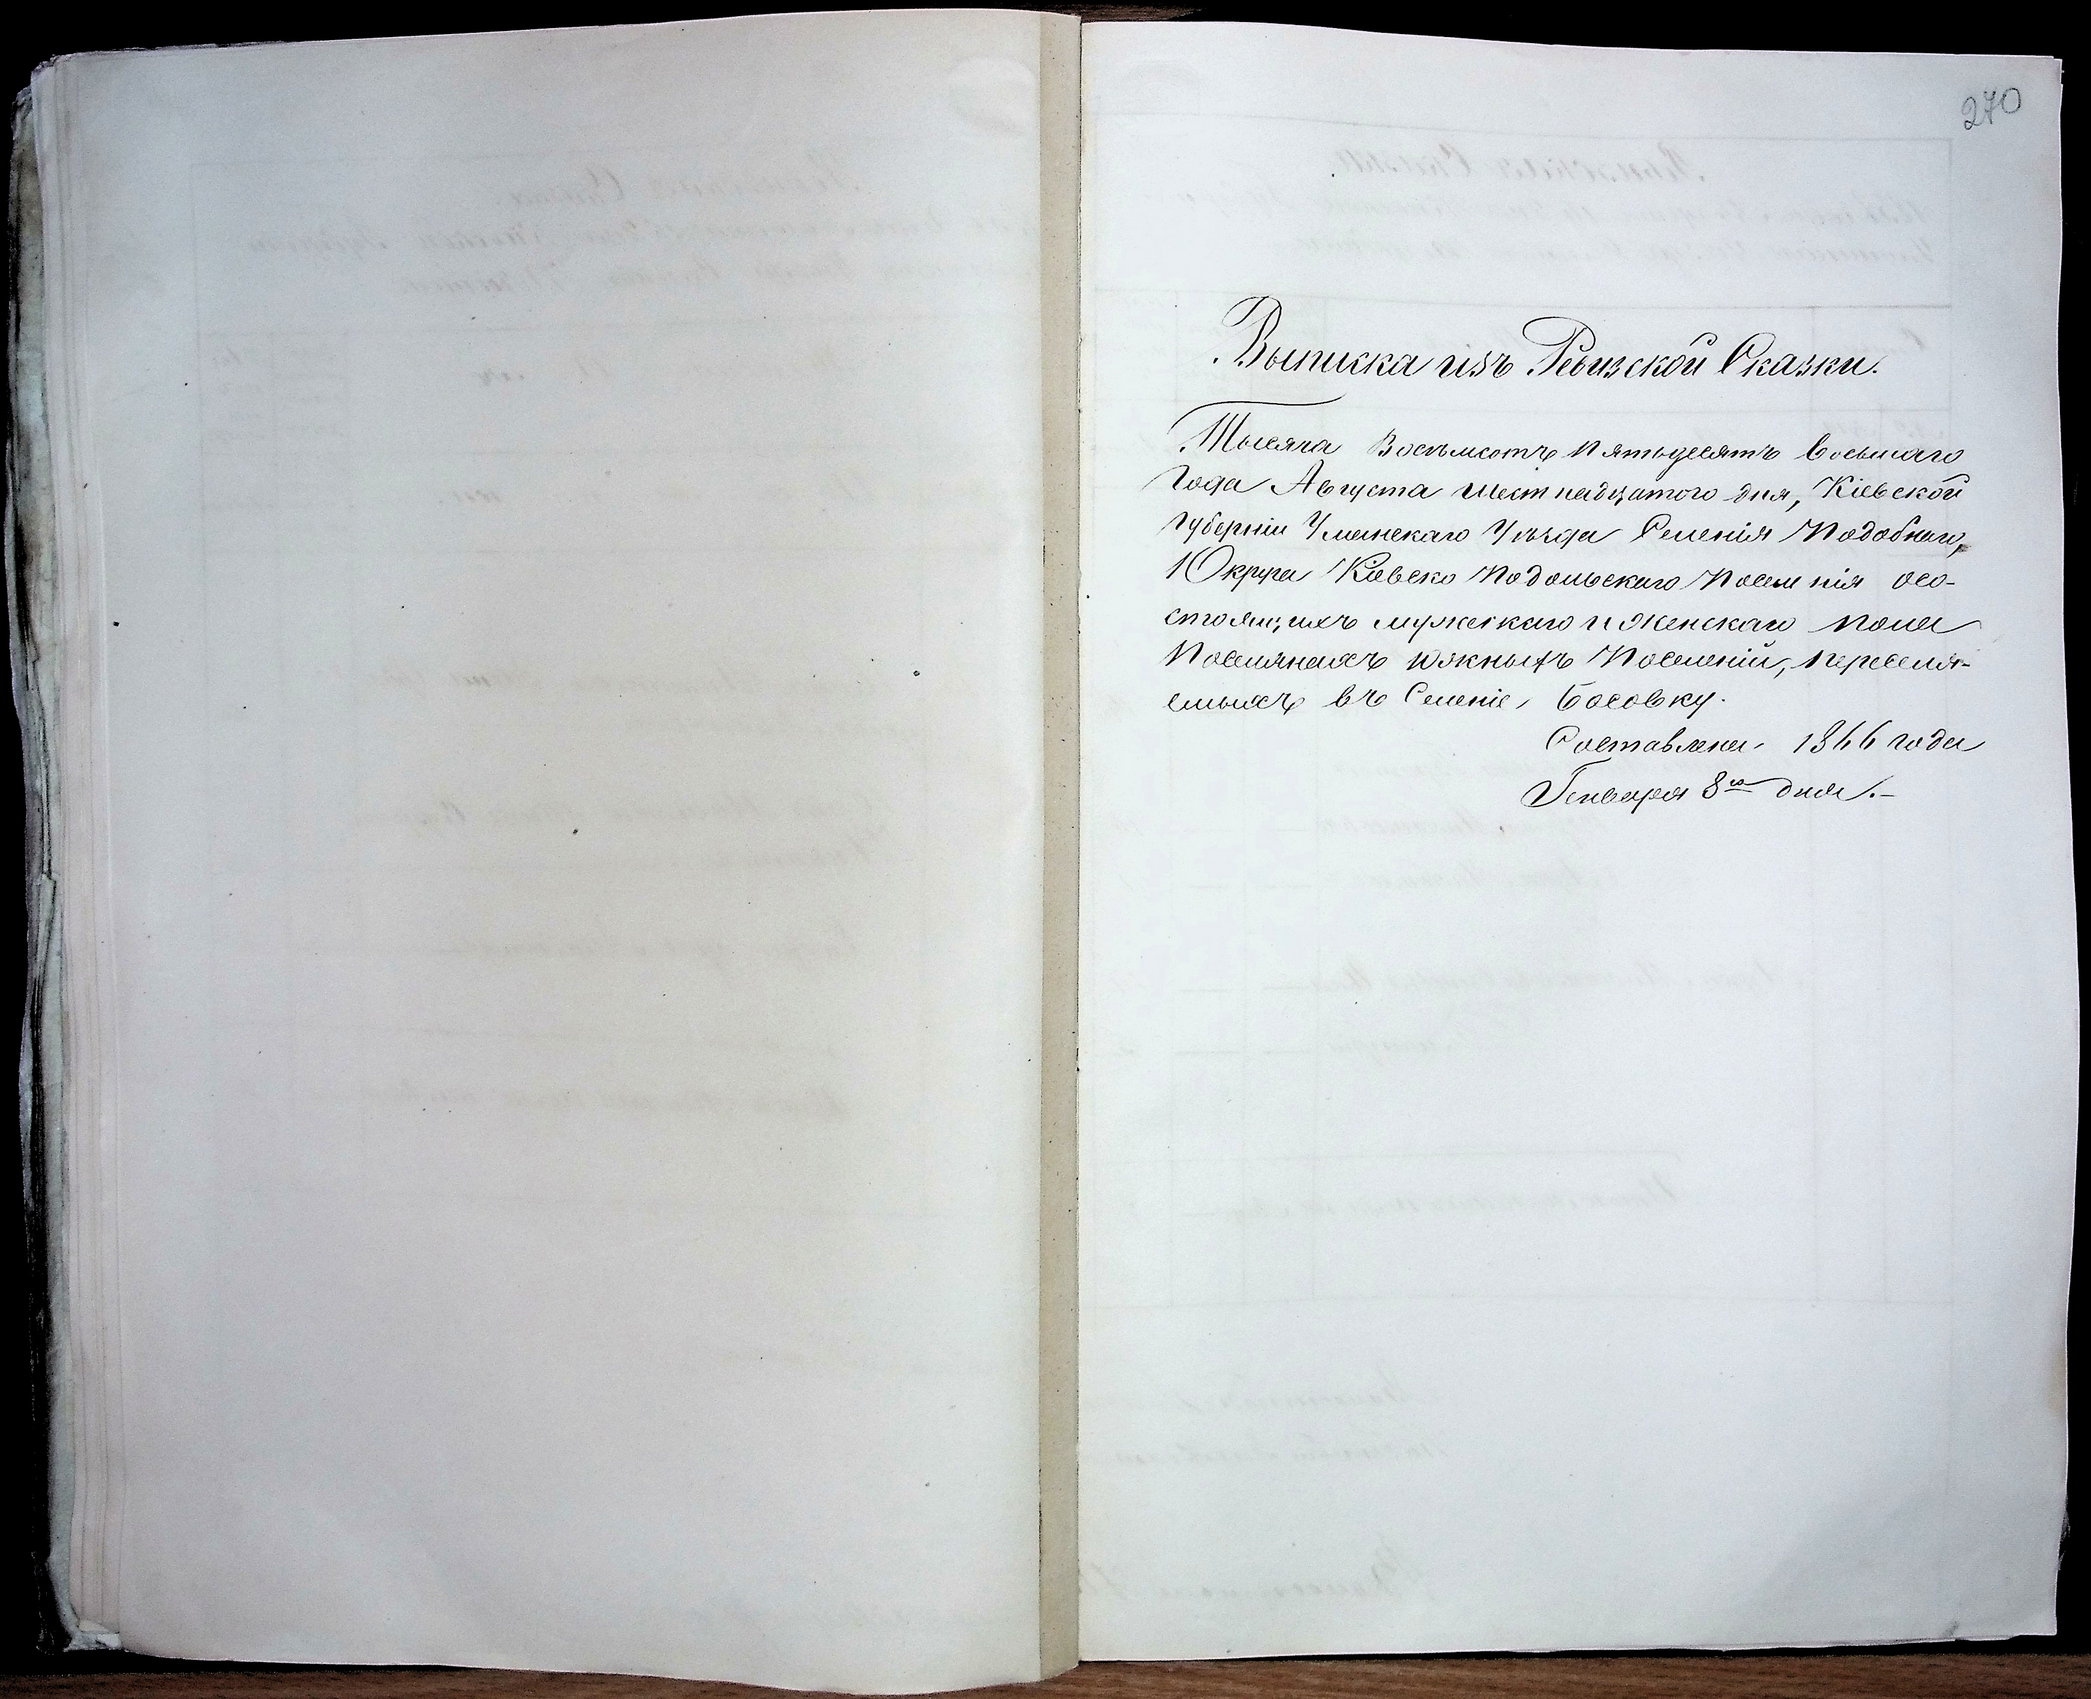 270
Выписка изъ Ревизской Сказки.
Тысяча Восемьсотъ Пятьдесятъ восьмаго
Года Августа шестнадцатого дня, Кіевской
Губерніи Уманскаго Уѣзда Селенія Подобнаго,
1 Округа Кіевско Подольскаго Поселенія осо-
стоящихъ мужескаго и женскаго пола
Поселянахъ Южныхъ Поселеній, переселя-
емыхъ въ Селеніе Босовку.
Составлена 1866 года
Генваря 8го дня.-